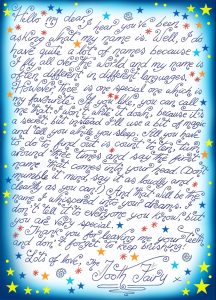 Hello my dear,
I hear you've been
asking what my name is. Well, I do
have quite a lot of names because
I fly all over the world and my name is
often different in different languages.
However, there is one special one which is
my favourite. If you like, you can call
me it. I won't write it down, because it's
a secret, but instead I'll use a bit of magic
and tell you while you sleep. All you have
to do to find out is count to ten, turn
around three times and say the first
name that comes into your head. Don't
mumble it, must say it as loudly and
clearly as you can! And that will be the
name I whispered into your dreams. I
don't tell it to everyone you know, but
you are very special.
Thanks for leaving me your teeth,
and don't forget to keep brushing!
Lots of love, The
Tooth Fairy x